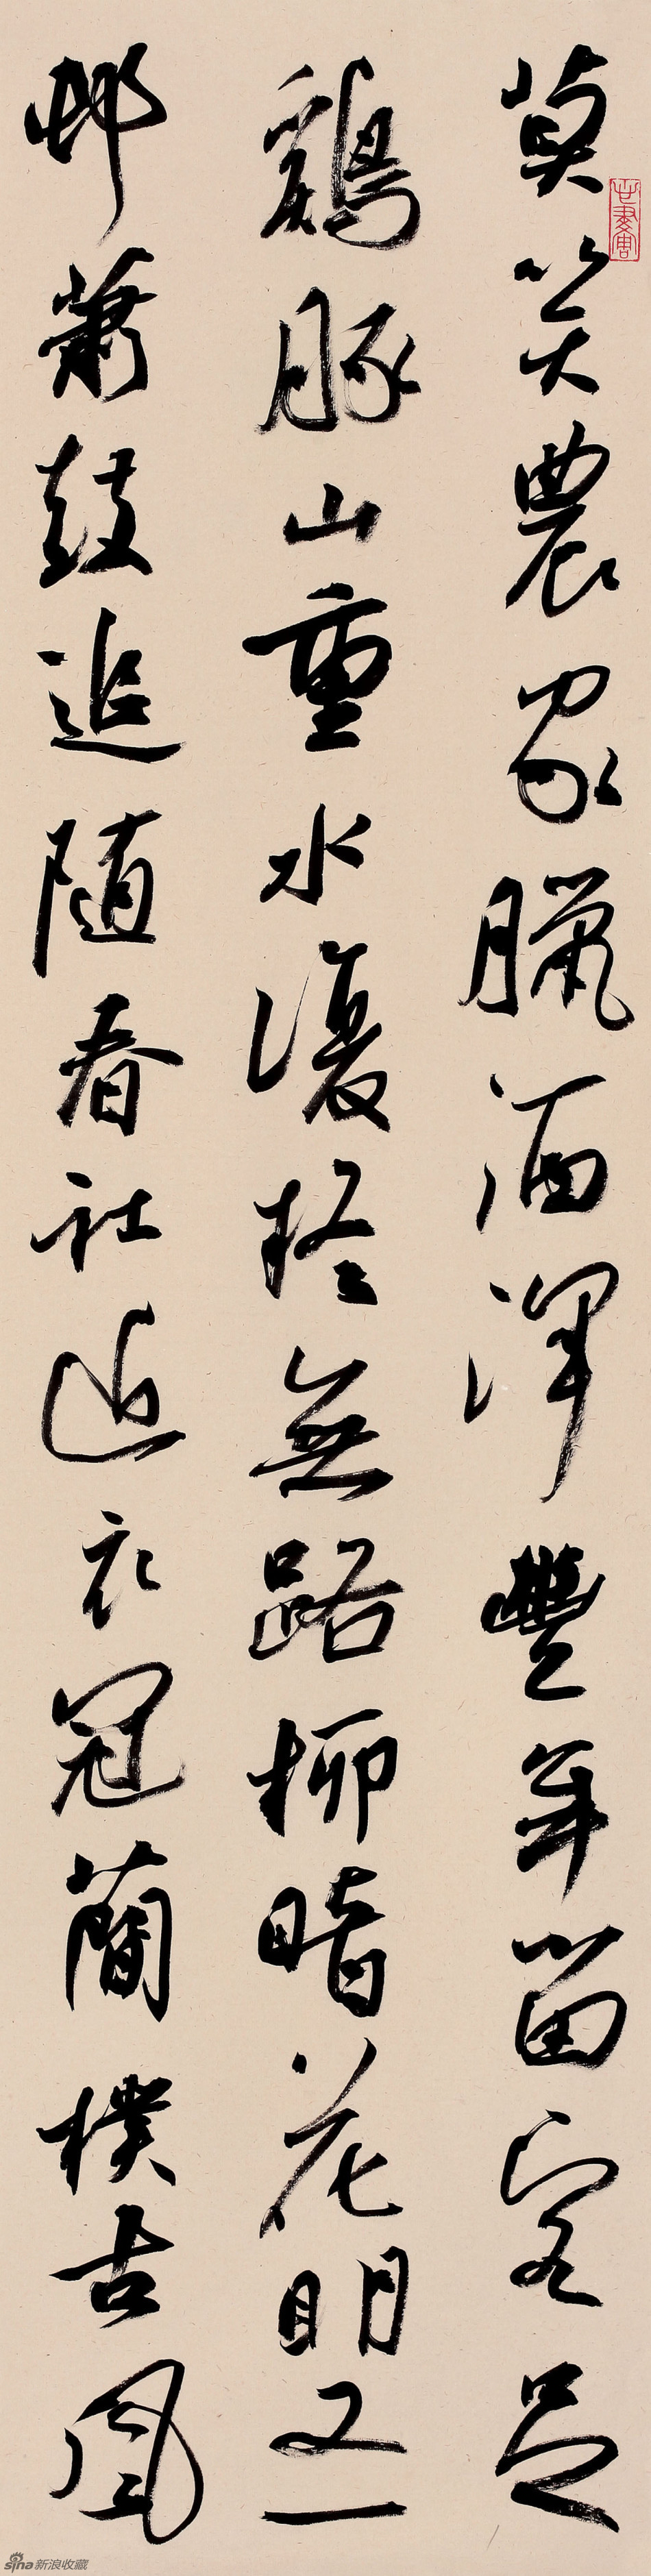 莫笑農家臘酒渾豐年留客足
鷄豚山重水復疑無路柳暗花明又一
邨簫鼓追随春社近衣冠簡樸古風
sina新浪收藏